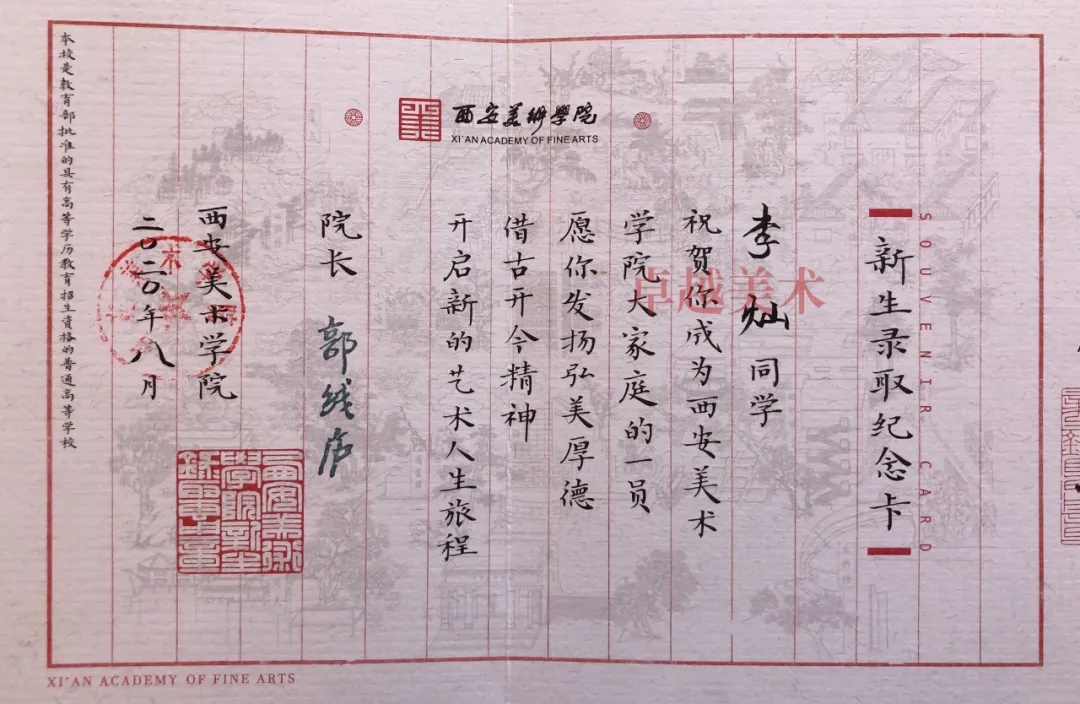 西安美术學院
XI'AN ACADEMY OF FINE ARTS
新生录取纪念卡
SOUVENIR CARD
李灿同学
祝贺你成为西安美术
学院大家庭的一员
愿你发扬弘美厚德
借古开今精神
开启新的艺术人生旅程
院长 郭线庐
西安美术学院
二〇二〇年八月
本校是教育部批准的具有高等学历教育招生资格的普通高等学校
卓越美术
XI'AN ACADEMY OF FINE ARTS